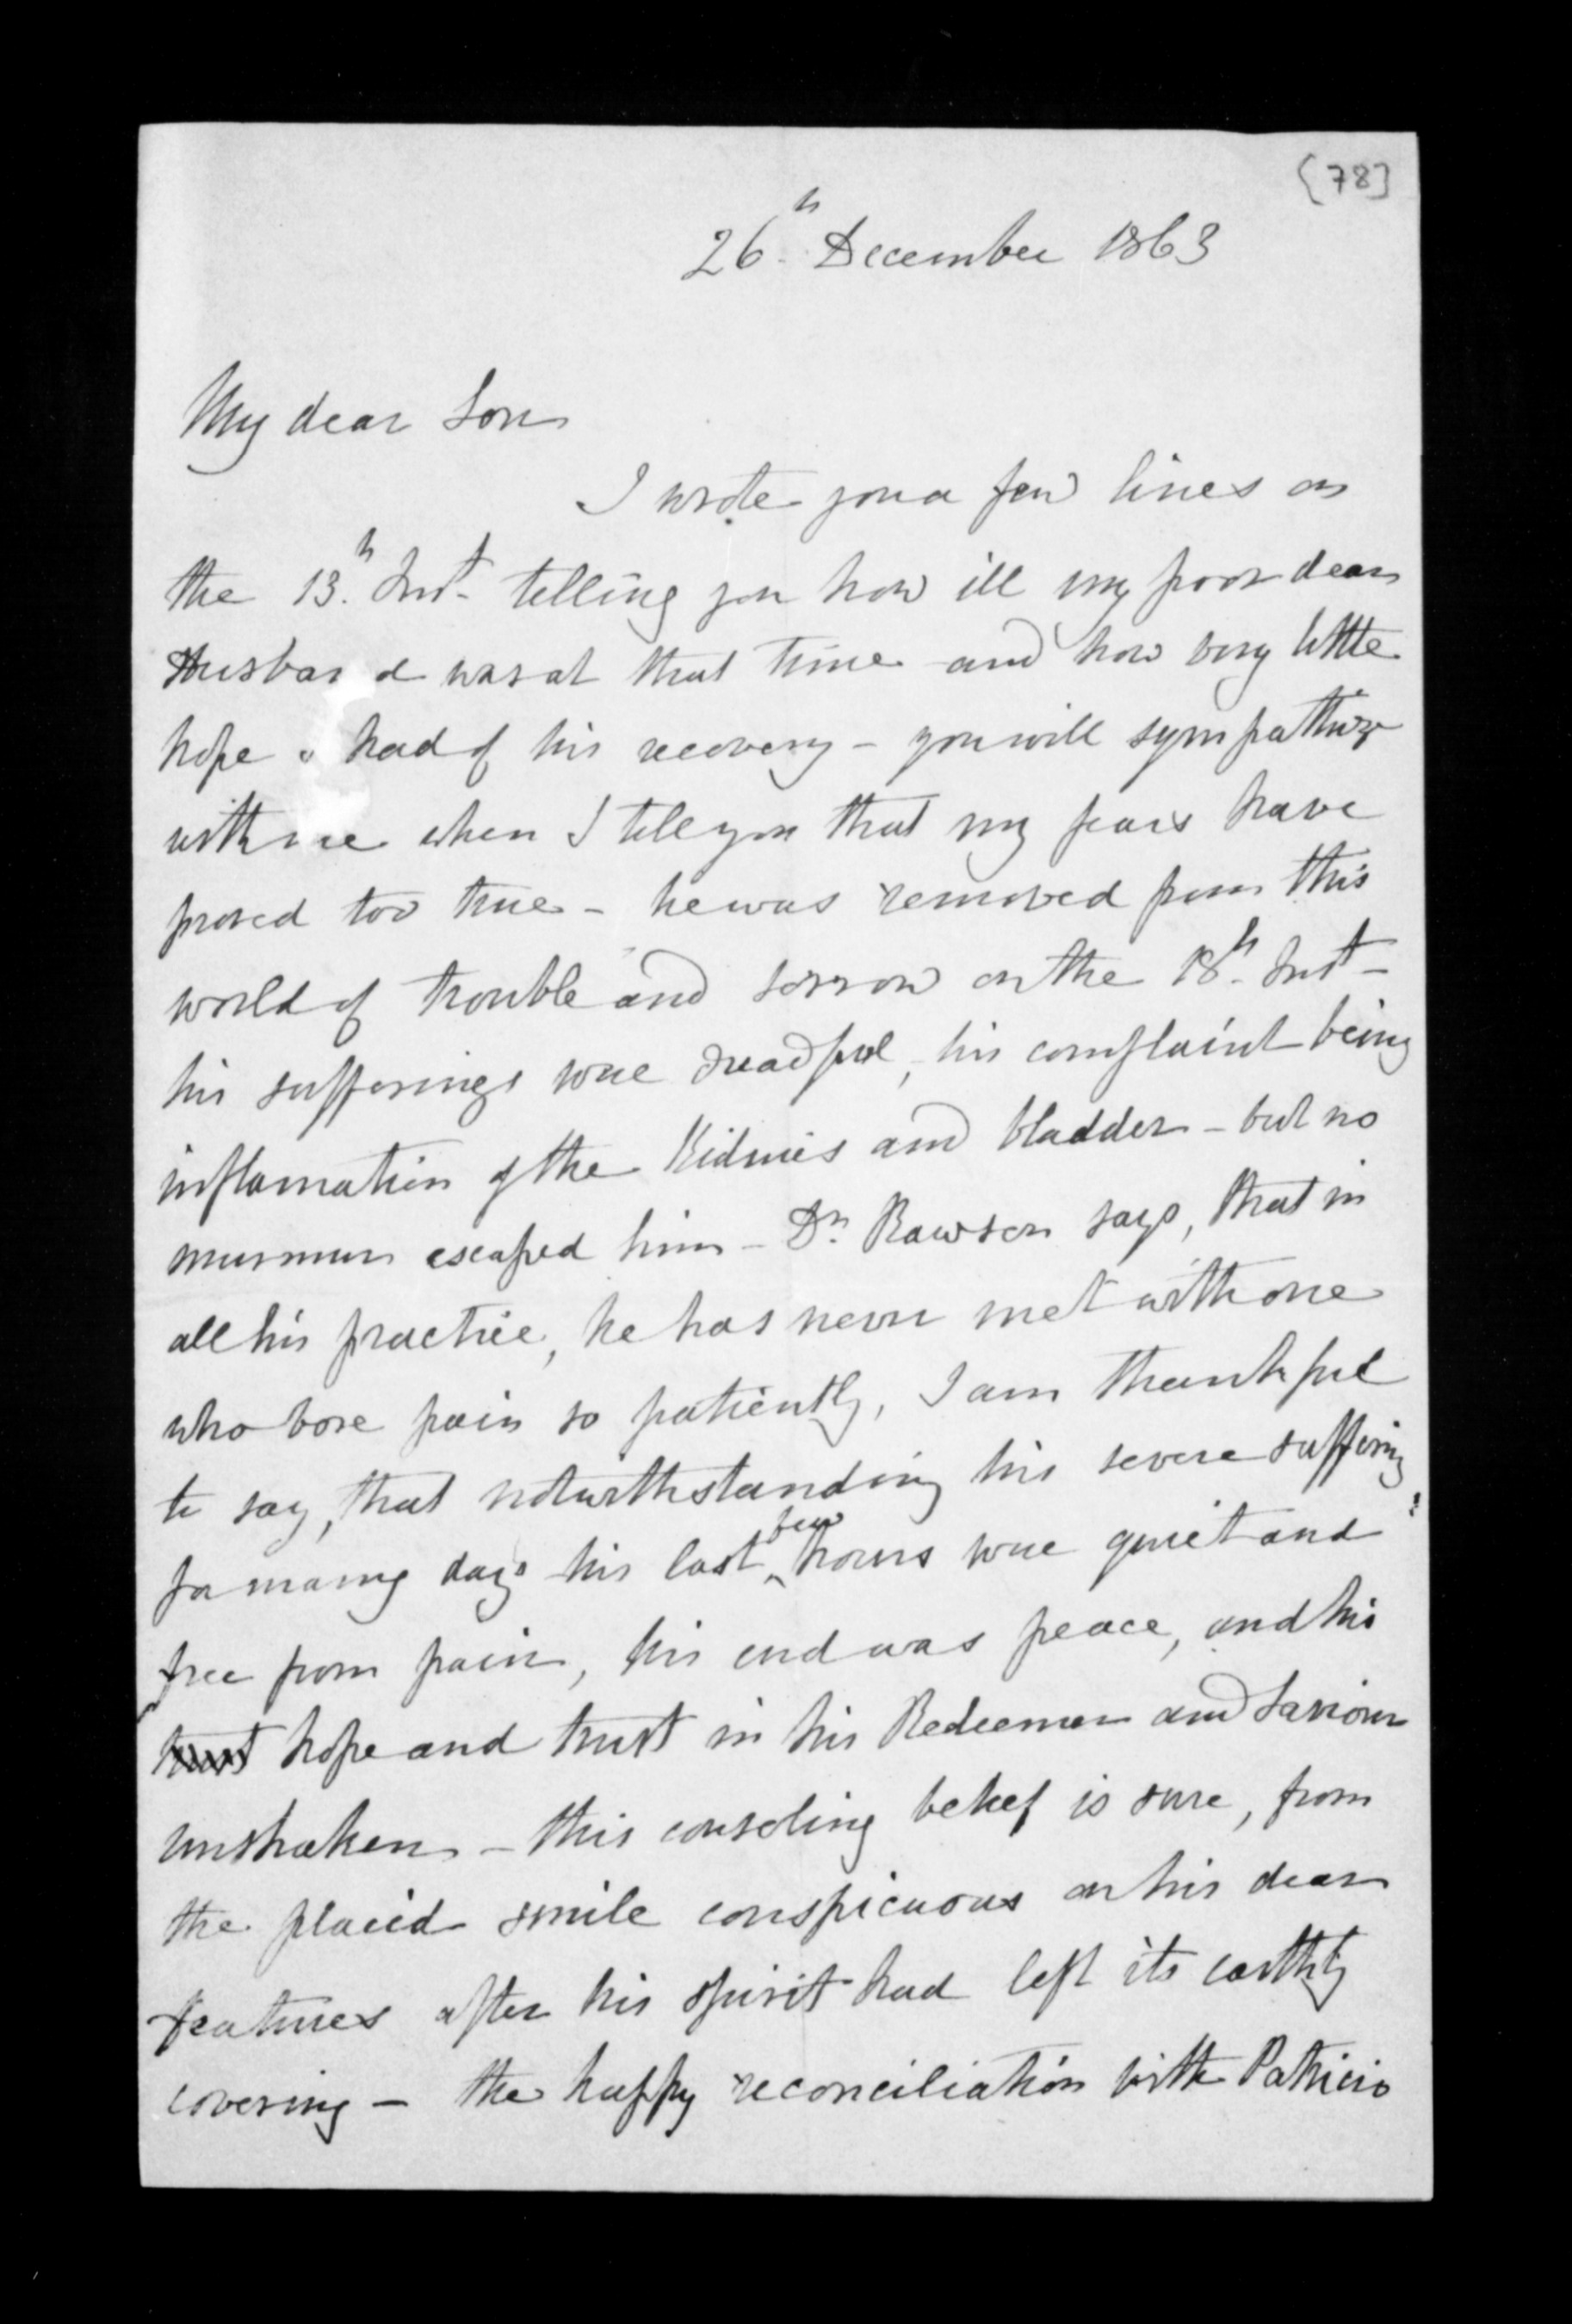 [78]
26th December 1863
My dear Son
I wrote you a few lines on
the 13th Inst- telling you how ill my poor dear
Husband was at that time and how very little
hope I had of his recovery - you will sympathize
with me when I tell you that my fears have
proved too true - he was removed from this
world of trouble and sorrow on the 18th Inst -
his sufferings were dreadful, his complaint being
inflamation of the Kidnies and bladder - but no
murmur escaped him - Dr. Rawson says, that in
all his practice, he has never met with one
who bore pain so patiently, I am thankful
to say, that notwithstanding his severe suffering
for many days his last few hours were quiet and
free from pain, his end was peace, and his
trust hope and trust in his Redeemer and Saviour
unshaken - this consoling belief is sure, from
the placid smile conspicuous on his dear
features after his spirit had left its earthly
covering - the happy reconciliation with Patricio